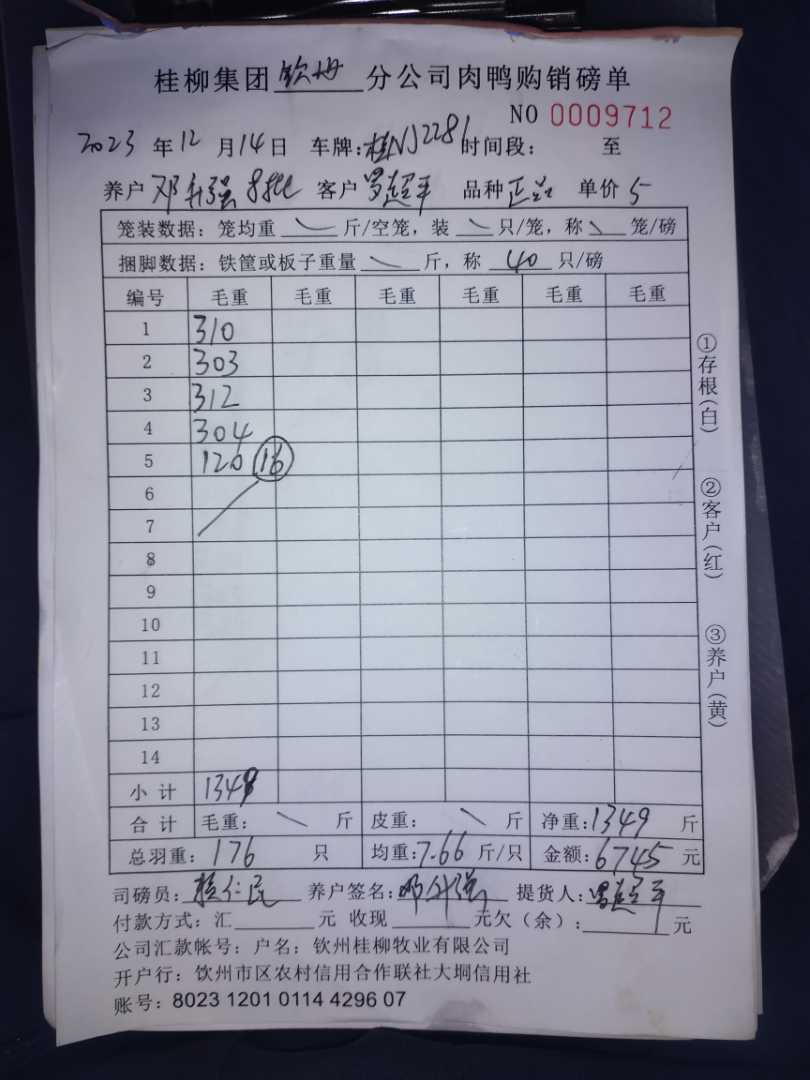 桂柳集团 钦州 分公司肉鸭购销磅单
NO 0009712
2023 年 12 月 14 日 车牌:桂NJ2281 时间段: 至
养户 邓升强 8批 客户 罗超平 品种 正兰 单价 5
笼装数据:笼均重 斤/空笼,装 只/笼,称 笼/磅
捆脚数据:铁筐或板子重量 斤,称 40 只/磅
编号 毛重 毛重 毛重 毛重 毛重 毛重
1 310
2 303
3 312
4 304
5 120 16
6
7
8
9
10
11
12
13
14
小计 1349
合计 毛重: 斤 皮重: 斤 净重:1349 斤
总羽重:176 只 均重:7.66 斤/只 金额:6745 元
司磅员: 仁民 养户签名:邓升强 提货人:罗超平
付款方式:汇 元 收现 元欠(余): 元
公司汇款帐号:户名:钦州桂柳牧业有限公司
开户行:钦州市区农村信用合作联社大垌信用社
账号:8023 1201 0114 4296 07
①存根(白)
②客户(红)
③养户(黄)